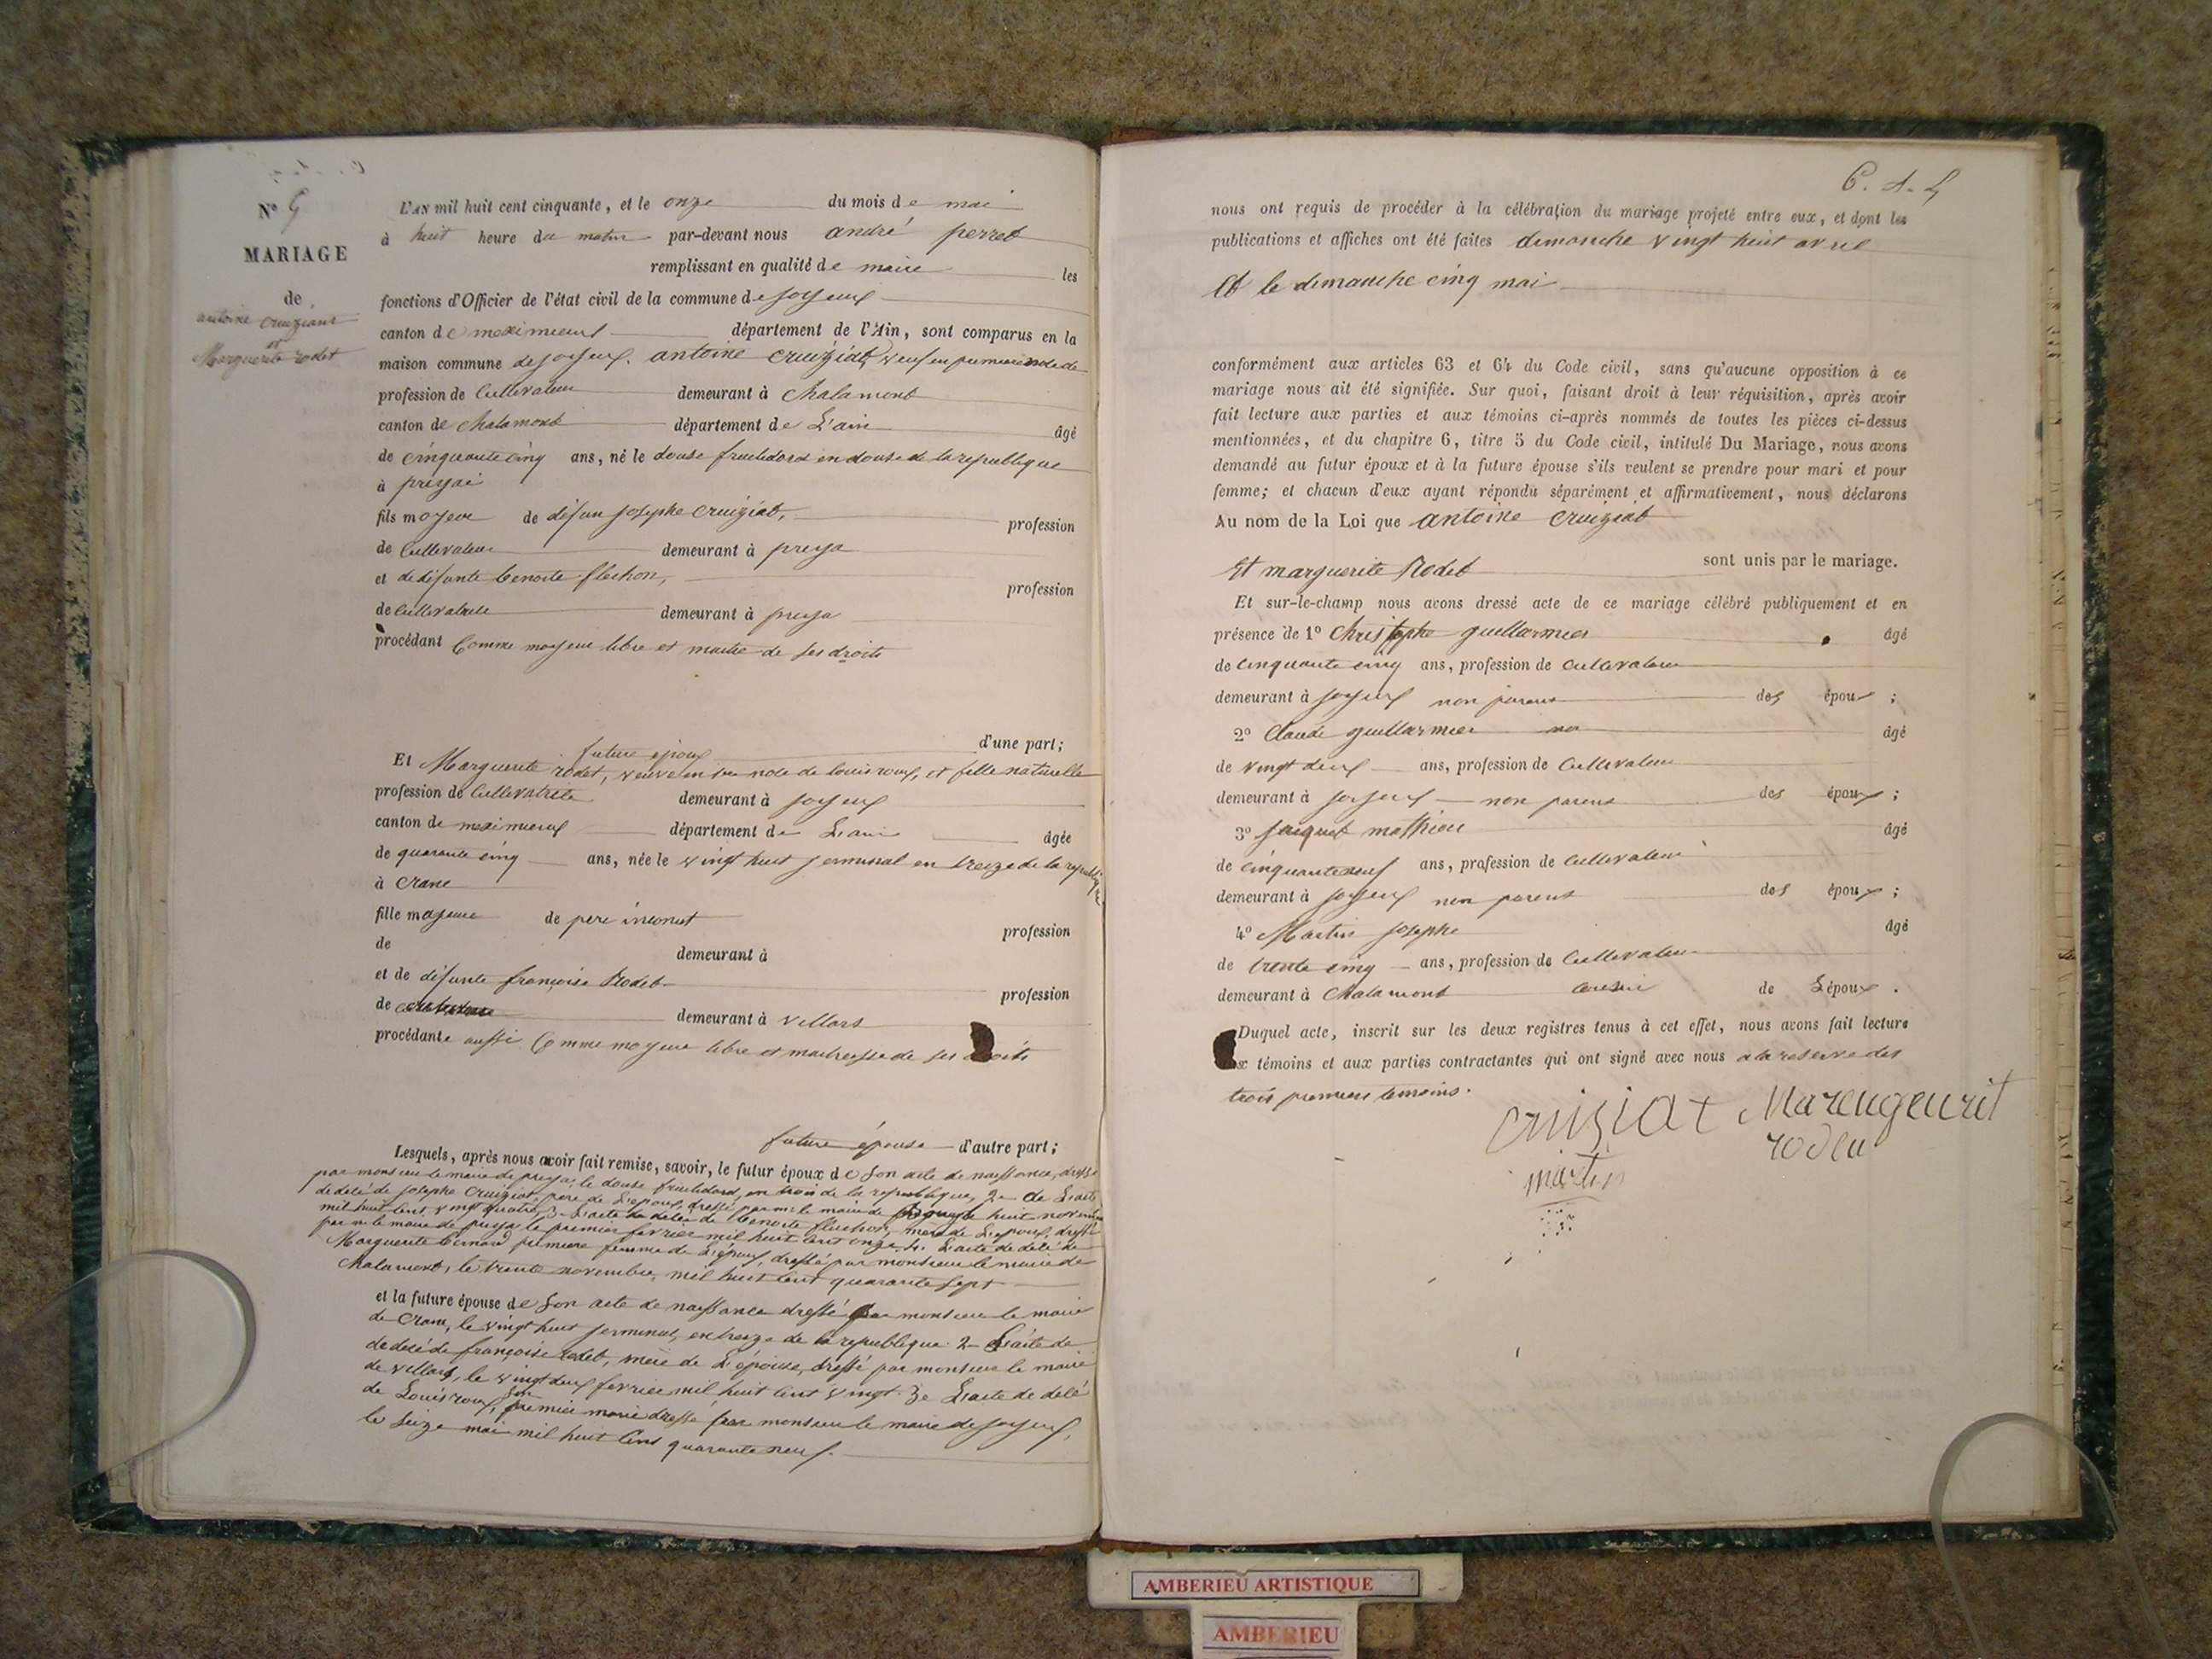 N° 5
MARIAGE
de
antoine Cruiziat
et
Marguerite rodet
L'AN mil huit cent cinquante, et le onze du mois de mai
à huit heure du matin par-devant nous andré perret
remplissant en qualité de maire les
fonctions d'Officier de l'état civil de la commune de joyeux
canton de meximieux département de l'Ain, sont comparus en la
maison commune de joyeux. antoine cruiziat, veuf en premiere noce de
profession de Cultivateur demeurant à Chalamont
canton de Chalamont département de L'ain âgé
de cinquante cinq ans, né le douse fructidord en douse de la republique
à priyai
fils majeur de défun josephe Cruiziat, profession
de Cultivateur demeurant à priya
et de défunte benoite fluchon, profession
de cultivatrice demeurant à priya
procédant Comme majeur libre et maitre de ses droits
future époux d'une part;
Et Marguerite rodet, veuve en 1re noce de louis roux, et fille naturelle
profession de Cultivatrice demeurant à joyeux
canton de meximieux département de L'ain âgée
de quarante cinq ans, née le vingt huit jerminal en treize de la republique
à Crane
fille majeure de pere inconut profession
de demeurant à
et de défunte françoise Rodet profession
de demeurant à villars
procédante aussi Comme majeure libre et maitresse de ses droits
future épouse d'autre part;
Lesquels, après nous avoir fait remise, savoir, le futur époux de son acte de naissance, dressé
par monsieur le maire de priya, le douse fructidord, en trois de la republique, 2e de L'acte
de délé de josephe Cruiziat, pere de L'epoux, dressé par mr le maire de huit novembre
mil huit cent vingt quatre, 3e L'acte de délé de benoite fluchon, mere de L'epoux, dressé
par m le maire de priya le premier fevrier mil huit cent onze. 4e L'acte de délé de
Marguerite bernard premiere femme de L'époux, dressé par monsieur le maire de
Chalamont, le trente novembre, mil huit cent quarante sept
et la future épouse de son acte de naissance dressé par monsieur le maire
de Crane, le vingt huit jerminal, en treize de la republique. 2e L'acte de
de délé de françoise rodet, mere de L'épouse, dressé par monsieur le maire
de villars, le vingt deux fevrier mil huit cent vingt. 3e L'acte de délé
de Louis roux, son premier marie dressé par monsieur le maire de joyeux,
le seize mai mil huit cent quarante neuf.
nous ont requis de procéder à la célébration du mariage projeté entre eux, et dont les
publications et affiches ont été faites dimanche vingt huit avril
Et le dimanche cinq mai
conformément aux articles 63 et 64 du Code civil, sans qu'aucune opposition à ce
mariage nous ait été signifiée. Sur quoi, faisant droit à leur réquisition, après avoir
fait lecture aux parties et aux témoins ci-après nommés de toutes les pièces ci-dessus
mentionnées, et du chapitre 6, titre 5 du Code civil, intitulé Du Mariage, nous avons
demandé au futur époux et à la future épouse s'ils veulent se prendre pour mari et pour
femme; et chacun d'eux ayant répondu séparément et affirmativement, nous déclarons
Au nom de la Loi que antoine Cruiziat
Et marguerite Rodet sont unis par le mariage.
Et sur-le-champ nous avons dressé acte de ce mariage célébré publiquement et en
présence de 1° Christophe guillarmier âgé
de cinquante cinq ans, profession de cultivateur
demeurant à joyeux non parent des époux ;
2° Claude guillarmier âgé
de vingt deux ans, profession de Cultivateur
demeurant à joyeux non parent des époux ;
3° jaiquet mathieu âgé
de cinquante neuf ans, profession de Cultivateur
demeurant à joyeux non parent des époux ;
4° Martin josephe âgé
de trente cinq ans, profession de Cultivateur
demeurant à Chalamont cousin de L'époux .
Duquel acte, inscrit sur les deux registres tenus à cet effet, nous avons fait lecture
aux témoins et aux parties contractantes qui ont signé avec nous a la reserve des
trois premiers temoins.
Cruiziat Marengeurit
rodeu
martin
AMBERIEU ARTISTIQUE
AMBERIEU